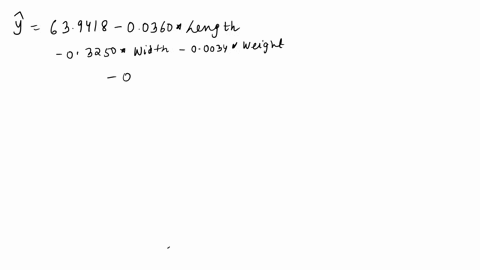 ŷ = 63.9418 - 0.0360 * Length
- 0.3250 * Width - 0.0034 * Weight
- 0